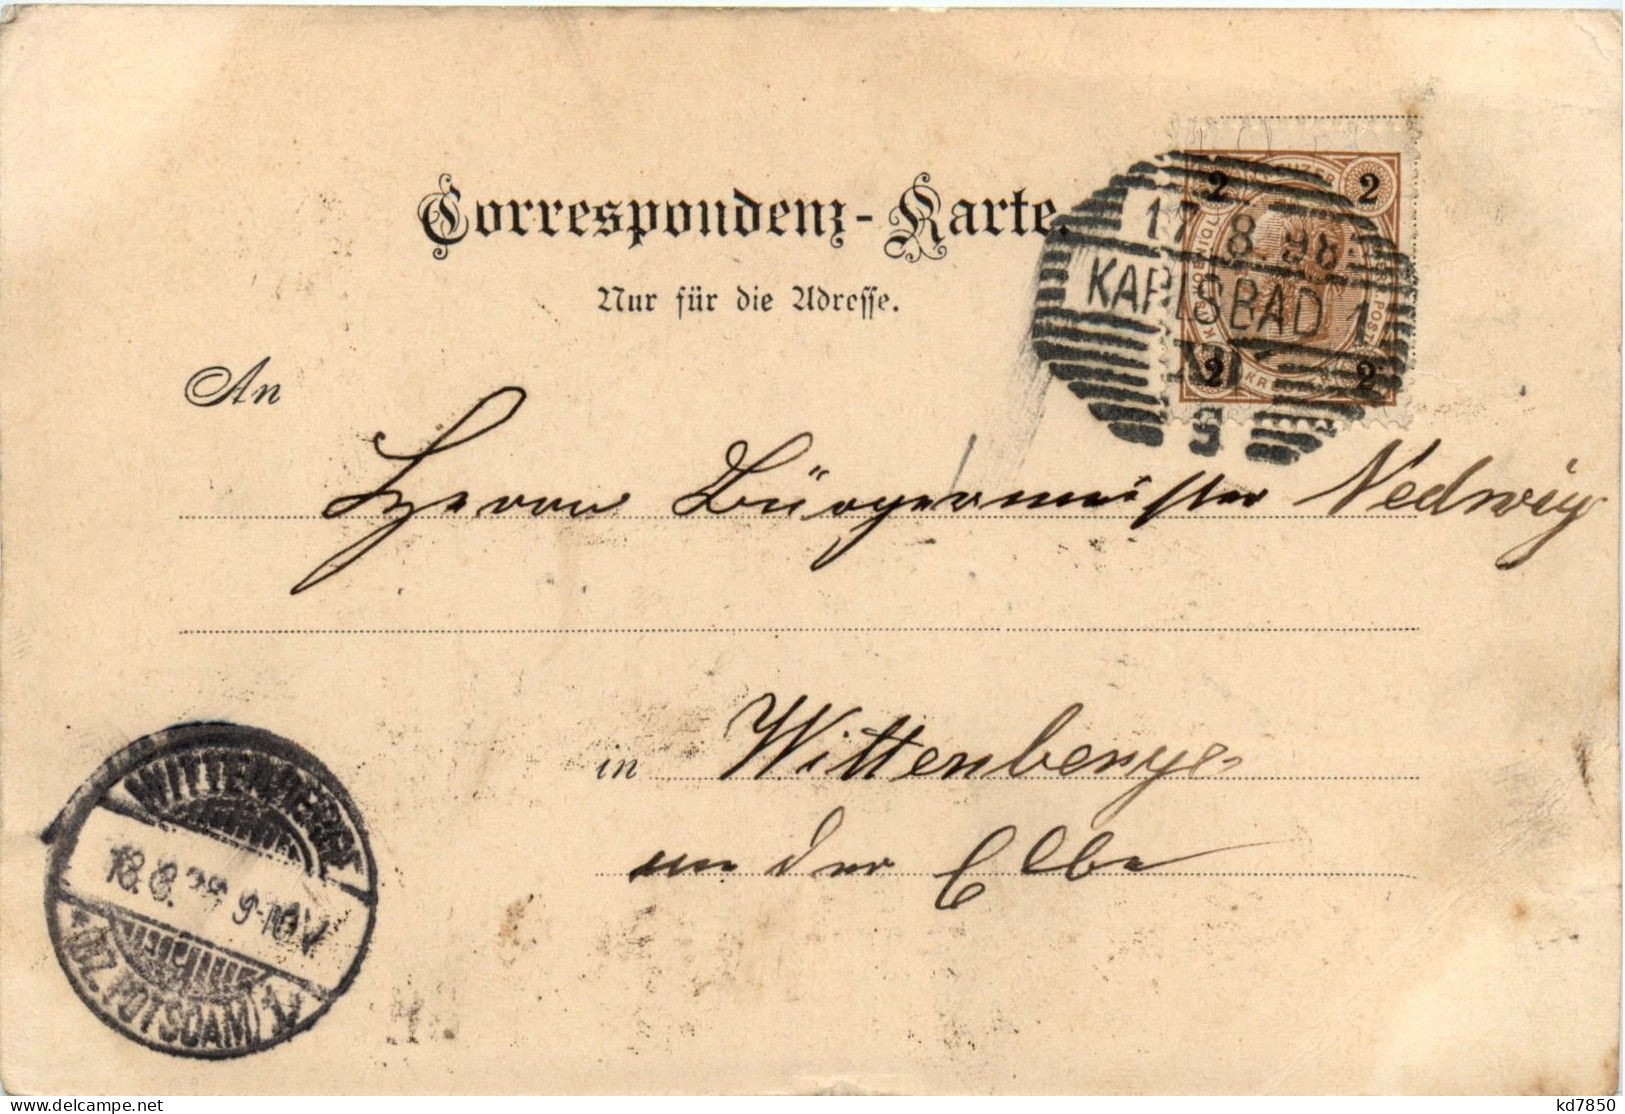 Correspondenz-Karte.
Nur für die Adresse.
2 2
17 8. 98
KARLSBAD 1
2 2
An
Herrn Bürgermeister Nedwig
in Wittenberge
an der Elbe
WITTENBERGE
18.8.98 9-10V
BZ. POTSDAM
delcampe.net
kd7850